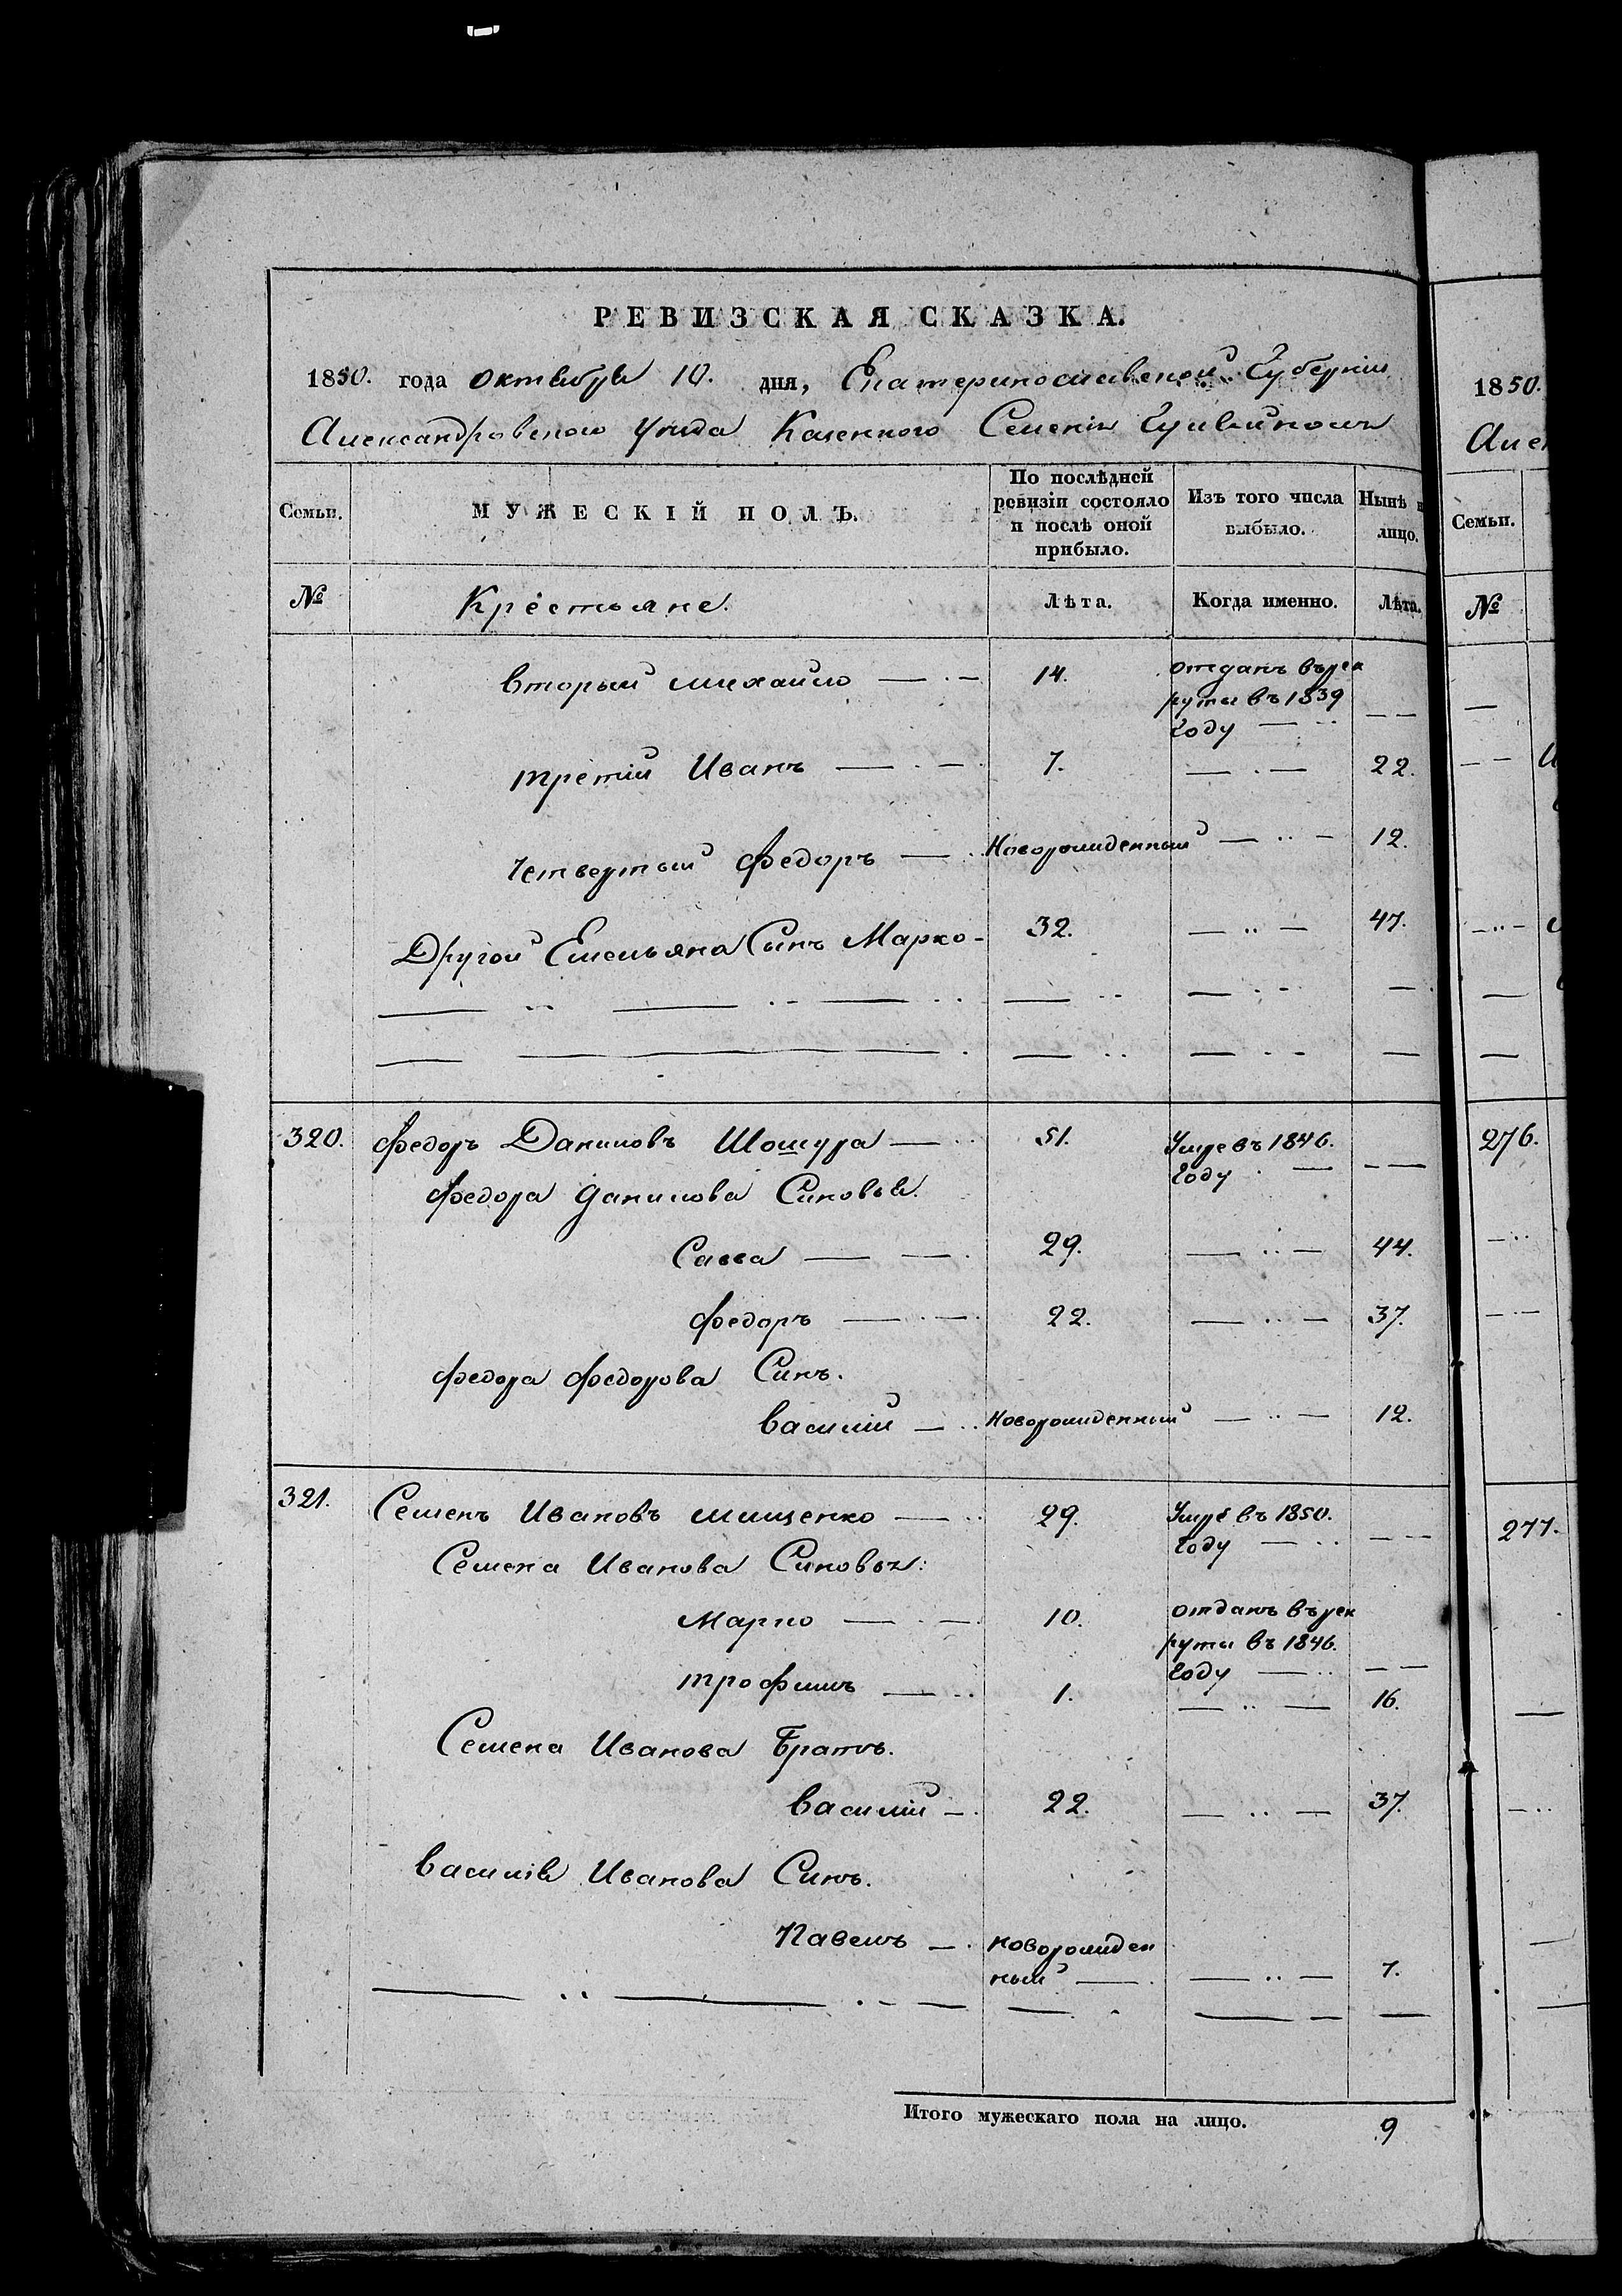 РЕВИЗСКАЯ СКАЗКА.
1850. года октября 10. дня, Екатеринославской Губерніи
Александровского уезда Казенного Селенія Гуляйполя
Семьи. МУЖЕСКІЙ ПОЛЪ. По послѣдней ревизіи состояло и послѣ оной прибыло. Изъ того числа выбыло. Нынѣ н лицо.
№ Крестьяне. Лѣта. Когда именно. Лѣта.
вторый михайло — 14. отданъ върек
рути въ 1839
Году — — —
третий Иванъ — 7. — 22.
Четвертый Федоръ — Новорожденный — 12.
Другой Емельяна Синъ Марко - 32. — 47.
320. Федоръ Даниловъ Шошура — 51. Умре въ 1846.
Году — — —
Федора Данилова Синовья.
Савва — 29. — 44.
Федоръ — 22. — 37.
Федора Федорова Синъ.
василий — Новорожденный — 12.
321. Семенъ Ивановъ мищенко — 29. Умре въ 1850.
Году — — —
Семена Иванова Синовья:
Марко — 10. отданъ върек
рути въ 1846.
Году — — —
трофимъ — 1. — 16.
Семена Иванова Братъ.
василий — 22. — 37.
василія Иванова Синъ.
Павелъ — новорожден
ный — — 7.
Итого мужескаго пола на лицо. 9
1850.
Алек
Семьи.
№
276.
277.